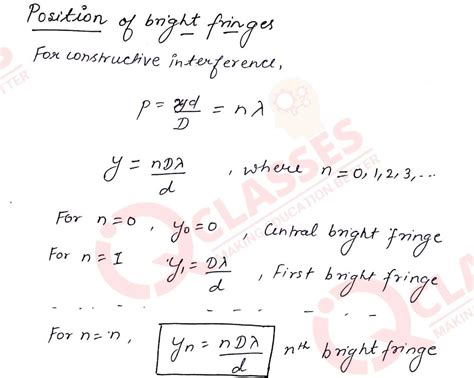 Position of bright fringes
For constructive interference,
P = yd/D = nλ
y = nDλ/d , where n = 0, 1, 2, 3, ...
For n = 0 , y₀ = 0 , Central bright fringe
For n = 1 y₁ = Dλ/d , First bright fringe
For n = n, yₙ = nDλ/d nᵗʰ bright fringe
CLASSES
MAKING EDUCATION BETTER